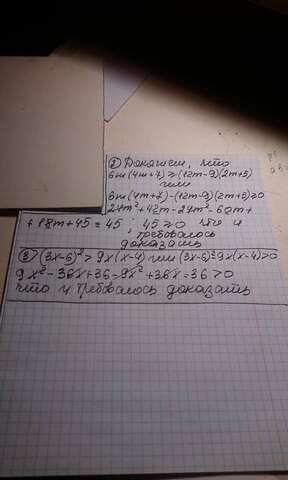 2) Докажем, что
6m(4m+7) ≥ (12m-9)(2m+5)
или
6m(4m+7)-(12m-9)(2m+5) ≥ 0
24m²+42m-24m²-60m+
+18m+45 = 45 ; 45 ≥ 0 что и
требовалось
доказать
3) (3x-6)² > 9x(x-4) или (3x-6)²-9x(x-4)>0
9x²-36x+36-9x²+36x=36>0
что и требовалось доказать